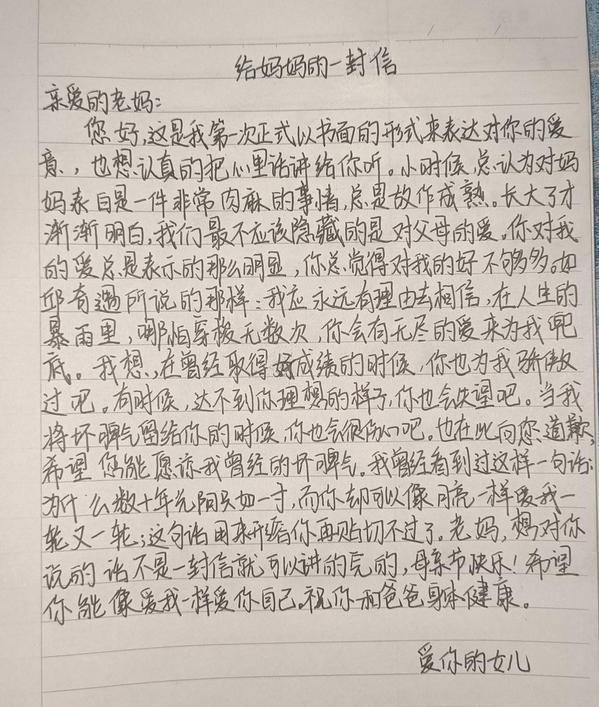 给妈妈的一封信
亲爱的老妈：
您好，这是我第一次正式以书面的形式来表达对你的爱
意，也想认真的把心里话讲给你听。小时候，总认为对妈
妈表白是一件非常肉麻的事情，总是故作成熟。长大了才
渐渐明白，我们最不应该隐藏的是对父母的爱。你对我
的爱总是表示的那么明显，你总觉得对我的好不够多。如
邱有遇所说的那样：我应永远有理由去相信，在人生的
暴雨里，哪怕穿板无数次，你会有无尽的爱来为我兜
底。我想，在曾经取得好成绩的时候，你也为我骄傲
过吧。有时候，达不到你理想的样子，你也会失望吧。当我
将坏脾气留给你的时候，你也会很伤心吧。也在此向您道歉，
希望您能原谅我曾经的坏脾气。我曾经看到过这样一句话：
为什么数十年光阴只如一寸，而你却可以像月亮一样爱我一
轮又一轮；这句话用来形容你再贴切不过了。老妈，想对你
说的话不是一封信就可以讲的完的，母亲节快乐！希望
你能像爱我一样爱你自己。祝你和爸爸身体健康。
爱你的女儿